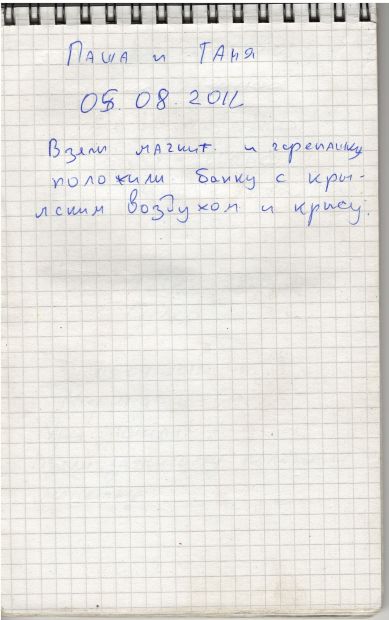 Паша и Таня
05.08.2012
Взяли магнит и черепашку
положили банку с кры-
мским воздухом и крысу.